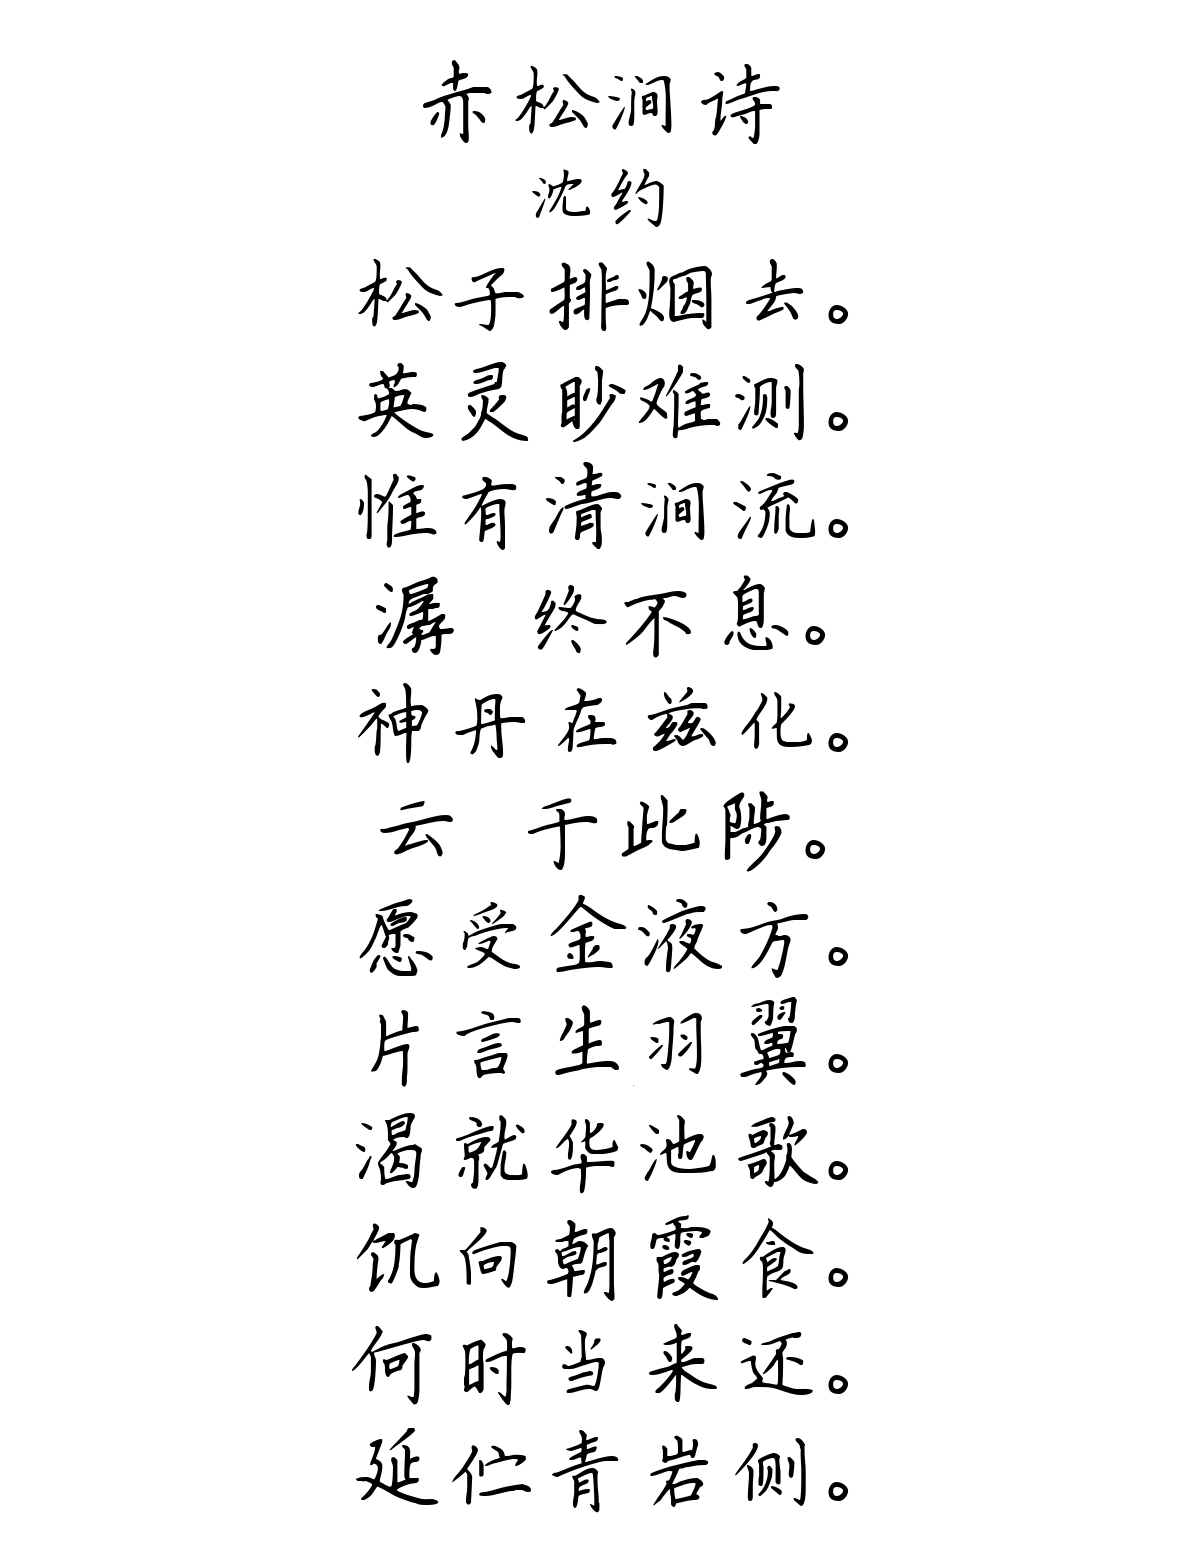 赤松涧诗
沈约
松子排烟去。
英灵眇难测。
惟有清涧流。
潺 终不息。
神丹在兹化。
云 于此陟。
愿受金液方。
片言生羽翼。
渴就华池歌。
饥向朝霞食。
何时当来还。
延伫青岩侧。